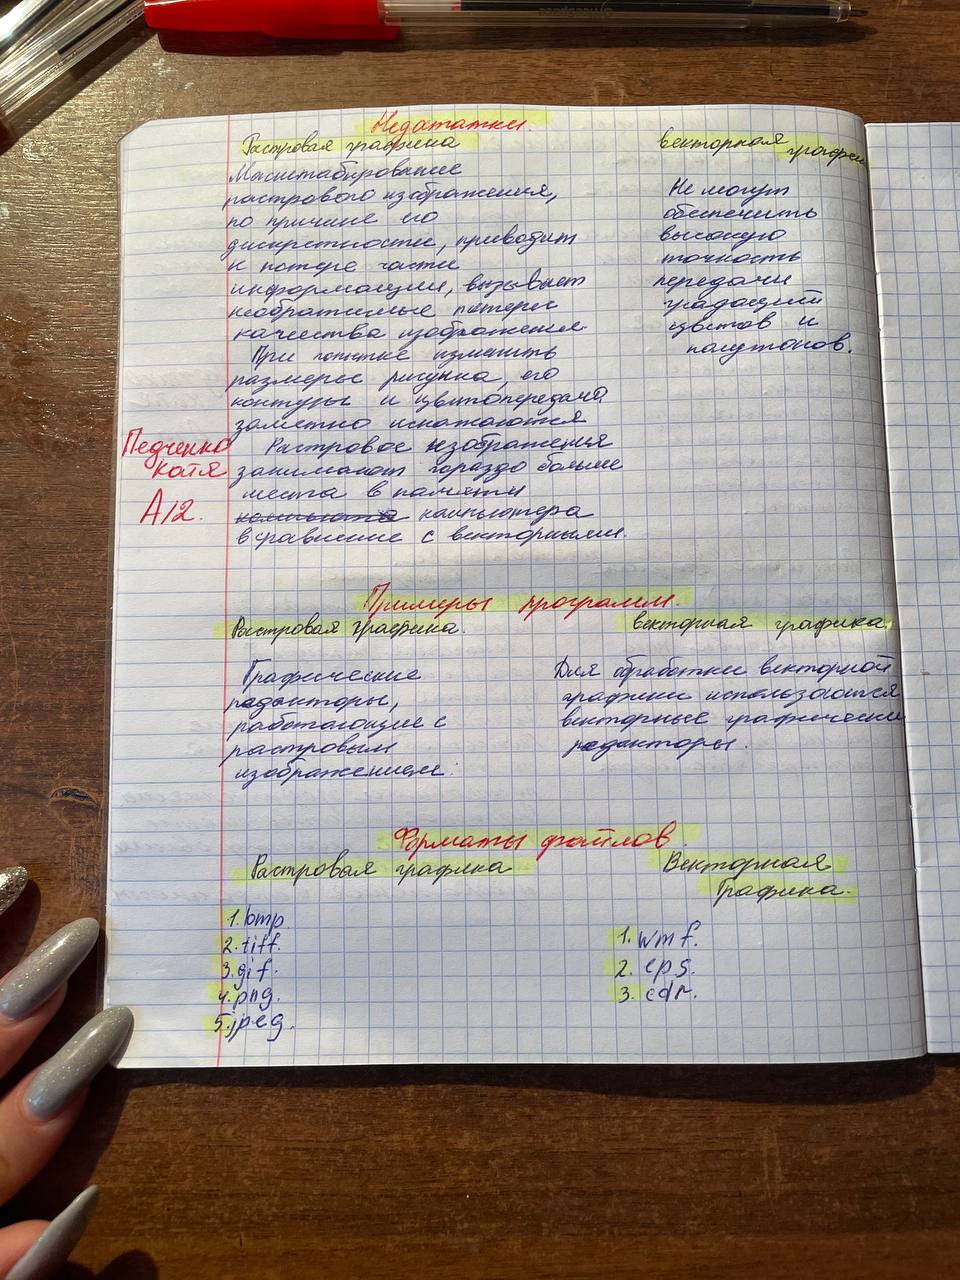 Недататки.
Растровая графика
векторная график
Масштабирование
растрового изображения,
по причине его
дискретности, приводит
к потере части
информации, вызывает
необратимые потери
качества изображения.
При попытке изменить
размеры рисунка, его
контуры и цветопередача
заметно искажаются
Растровое изображения
занимают гораздо больше
места в памяти
компьютера
в сравнение с векторными.
Не могут
обеспечить
высокую
точность
передачи
градаций
цветов и
полутонов.
Педченко
Катя
А12.
Примеры программ.
Растровая графика.
векторная графика
Графические
редакторы,
работающие с
растровым
изображением.
Для обработки векторной
графики используются
векторные графически
редакторы.
Форматы файлов.
Растровая графика
Векторная
Графика.
1. bmp
2. tiff.
3. gif.
4. png.
5. jpeg.
1. wmf.
2. eps.
3. cdr.